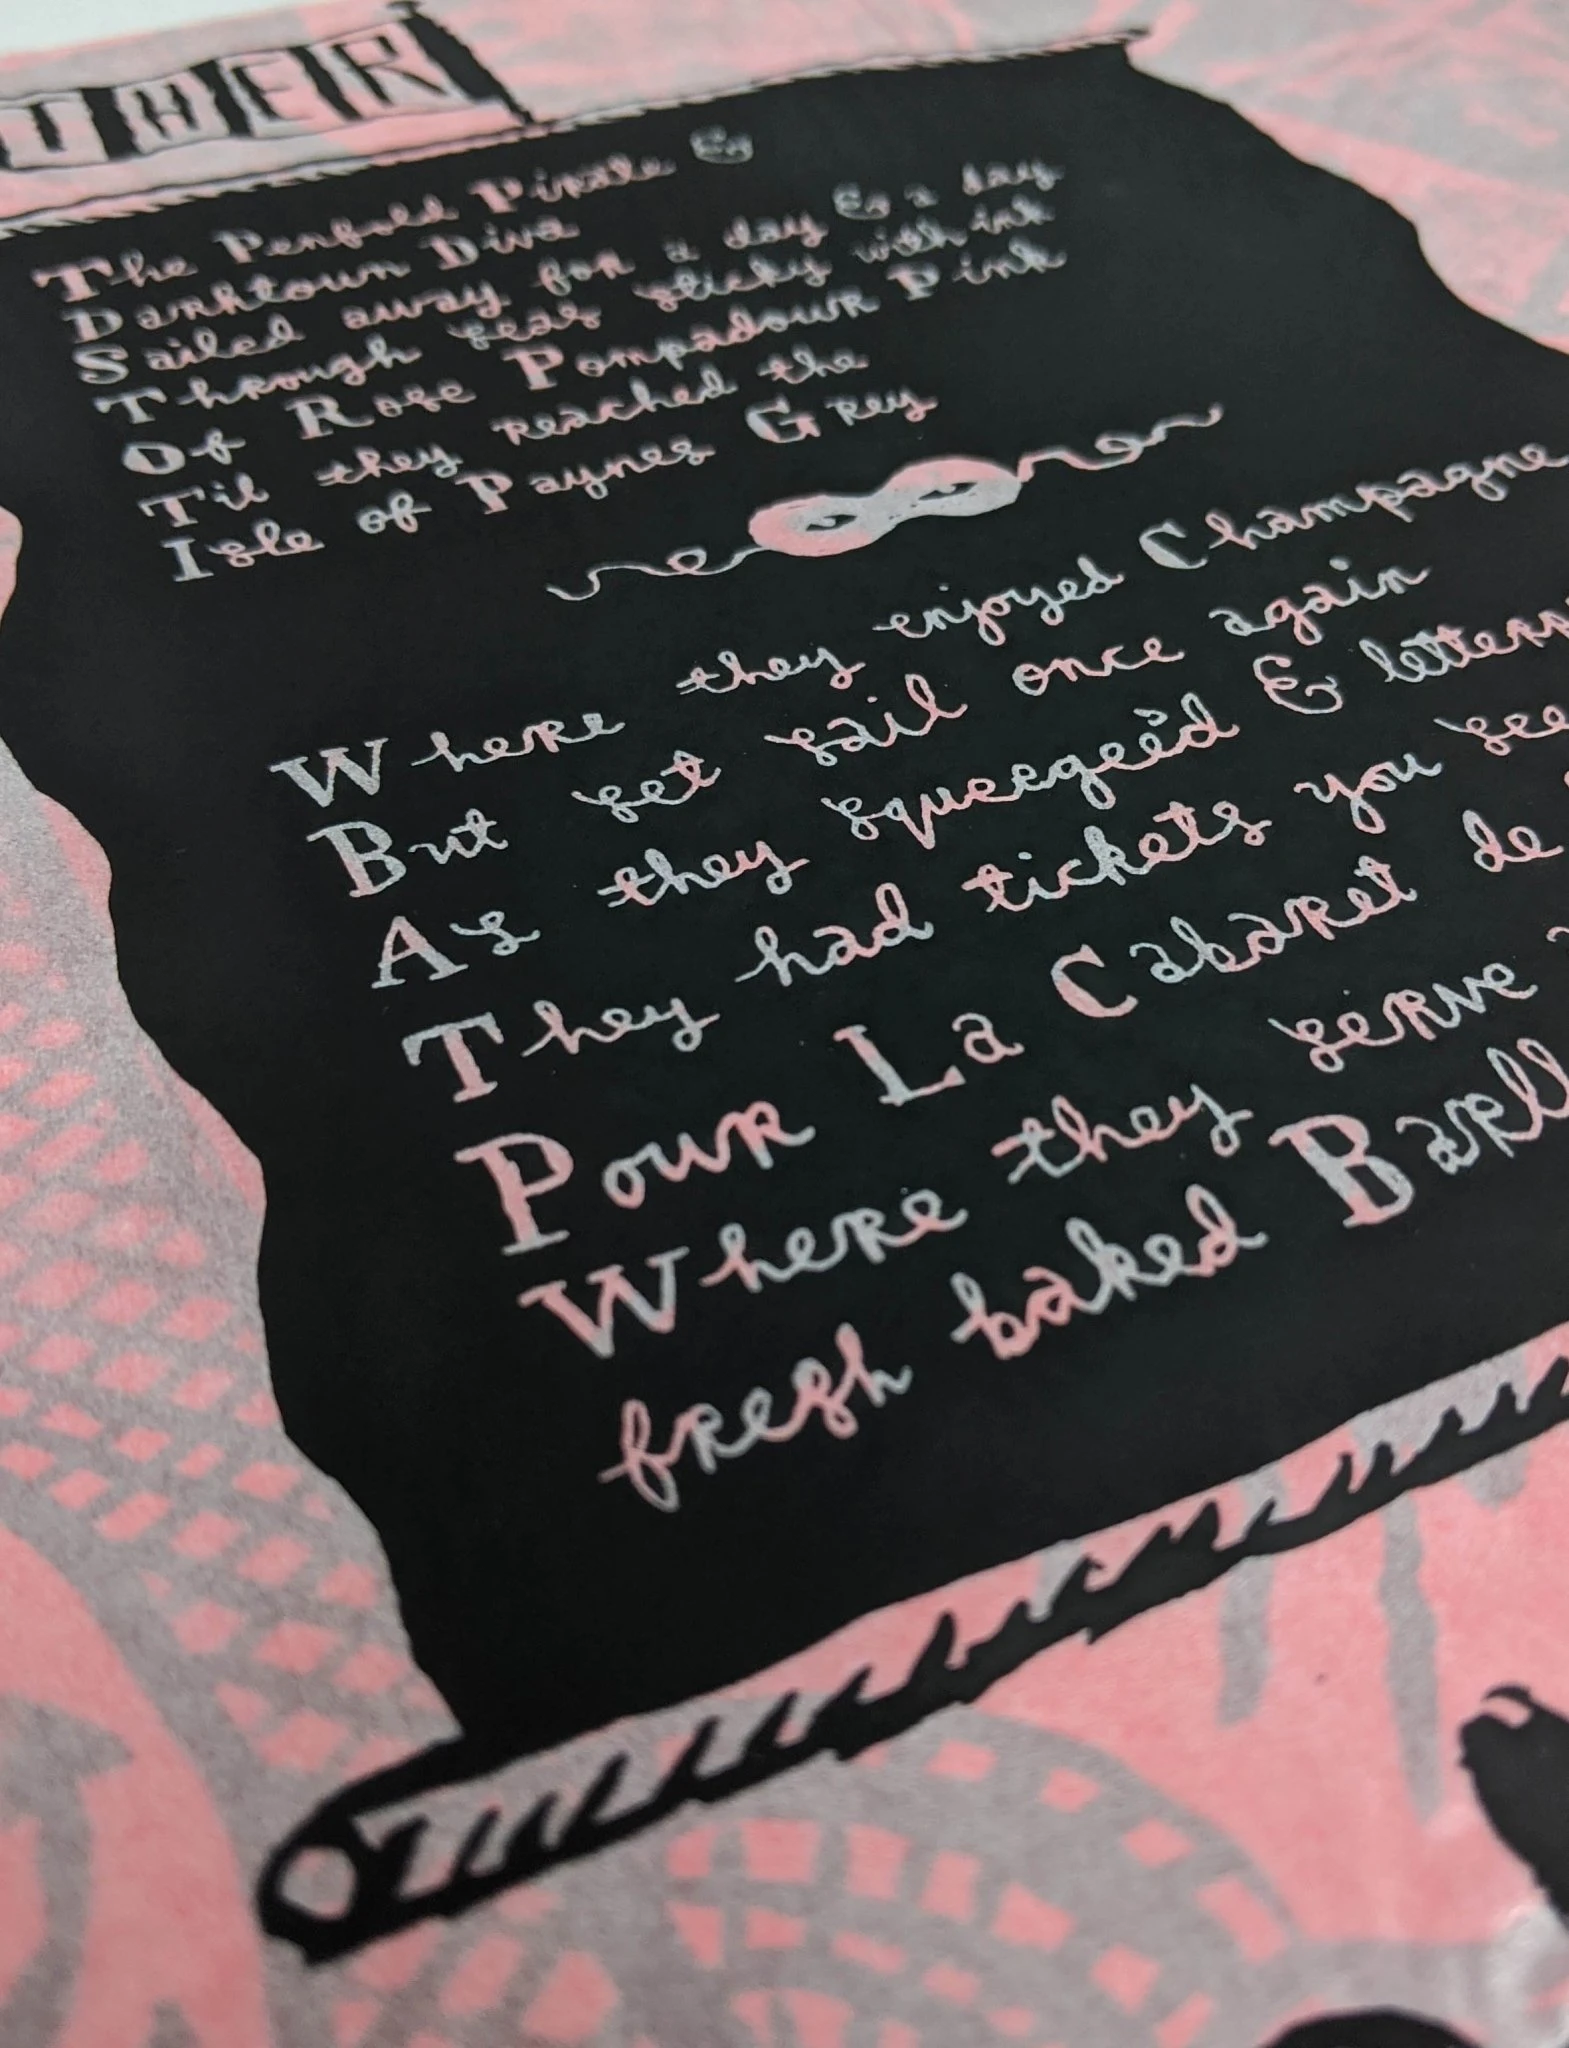 THER
The Penfold Pirate &
Darktown Diva
Sailed away for a day & a day
Through seas sticky with ink
Of Rose Pompadour Pink
Til they reached the
Isle of Paynes Grey
Where they enjoyed Champagne
But set sail once again
As they squeegeè'd & letterp
They had tickets you see
Pour La Cabaret de
Where they serve
fresh baked Barll